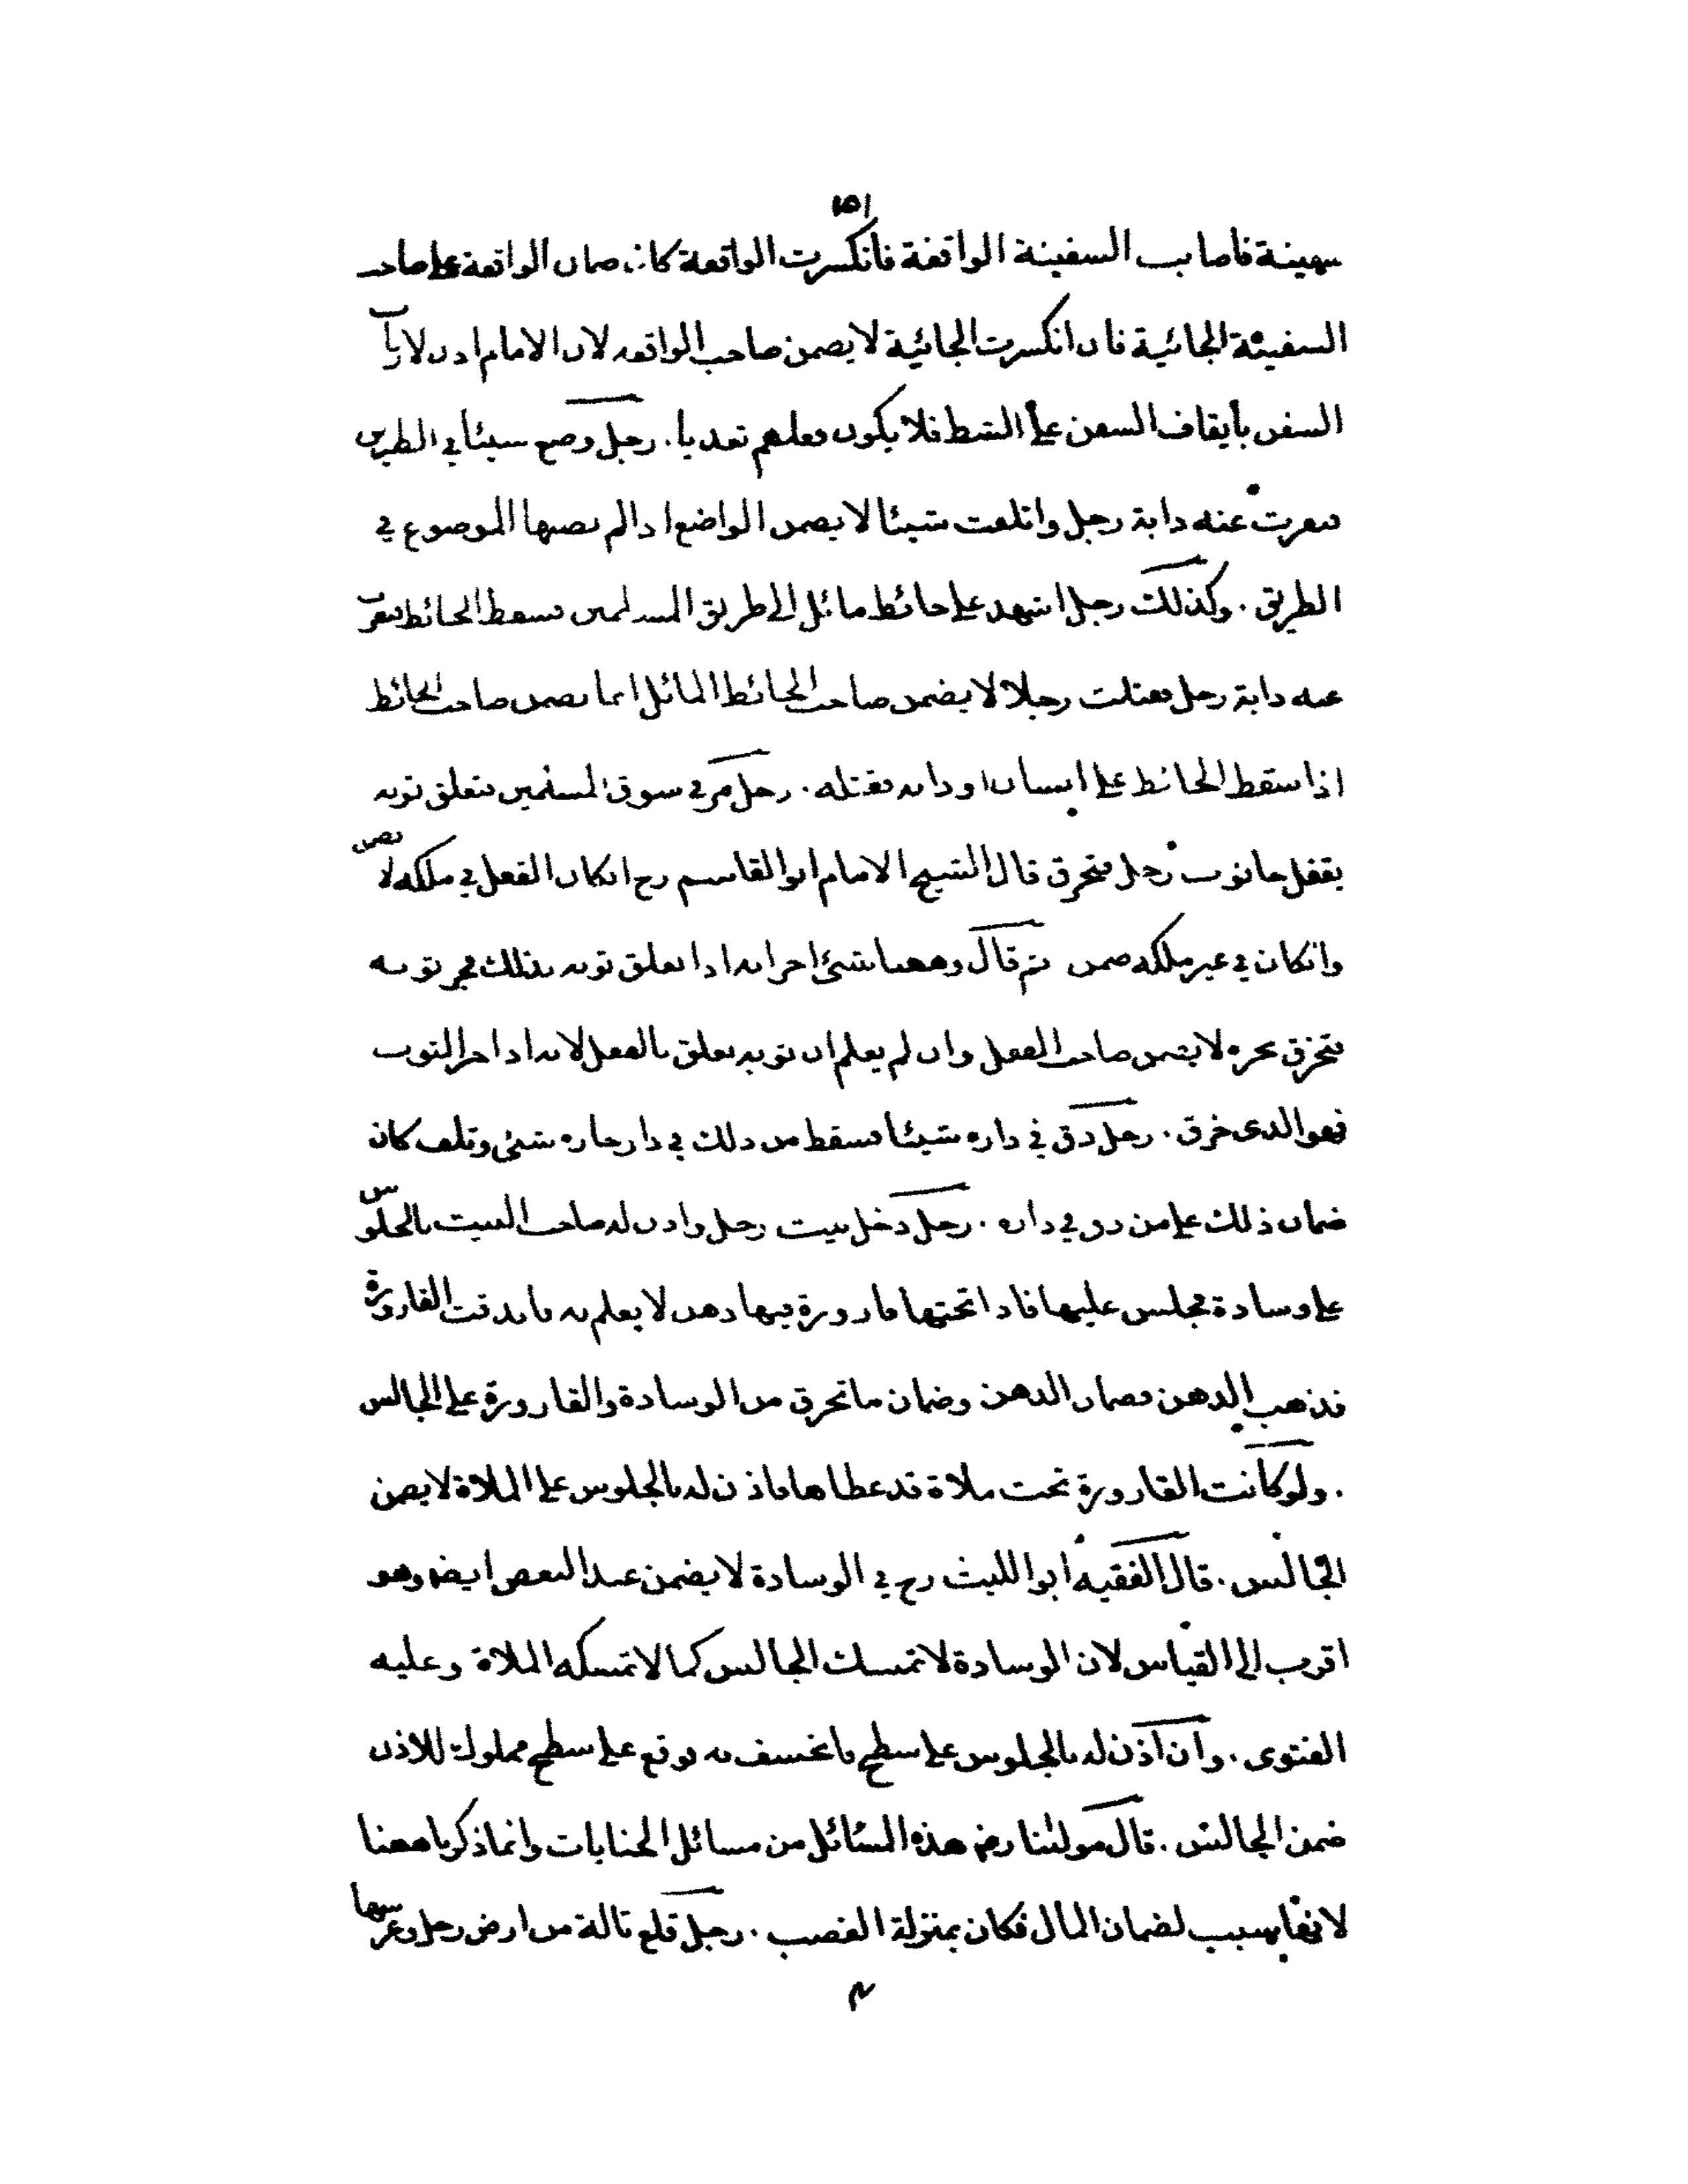 ١٥١
سفينة فاصابت السفينة الواقفة فانكسرت الواقفة كان ضمان الواقفة على صاحب
السفينة الجائية فان انكسرت الجائية لا يضمن صاحب الواقفة لان الامام اذن لارباب
السفن بأيقاف السفن على الشط فلا يكون فعلهم تعديا . رجل وضع شيئا في الطريق
فنفرت عنه دابة رجل واتلفت شيئا لا يضمن الواضع اذا لم يصبها الموضوع في
الطريق . وكذلك رجل اشهد على حائط مائل الى طريق المسلمين فسقط الحائط فنفرت
عنه دابة رجل فقتلت رجلا لا يضمن صاحب الحائط المائل انما يضمن صاحب الحائط
اذا سقط الحائط على انسان او دابة فقتله . رجل مر في سوق المسلمين فتعلق ثوبه
بقفل حانوت رجل فتخرق قال الشيخ الامام ابو القاسم رح انكان القفل في ملكه لا يضمن
وانكان في غير ملكه ضمن ثم قال وههنا شئ اخر انه اذا تعلق ثوبه بذلك فجر ثوبه
فتخرق بجره لا يضمن صاحب القفل وان لم يعلم ان ثوبه تعلق بالقفل لانه اذا جر الثوب
فهو الذى خرق . رجل دق في داره شيئا فسقط من ذلك في دار جاره شئى وتلف كان
ضمان ذلك على من دق في داره . رجل دخل بيت رجل واذن له صاحب البيت بالجلوس
على وسادة فجلس عليها فاذا تحتها قارورة فيها دهن لا يعلم به فاندقت القارورة
فذهب الدهن فضمان الدهن وضمان ما تخرق من الوسادة والقارورة على الجالس
. ولو كانت القارورة تحت ملاة قد غطاها فاذن له بالجلوس على الملاة لا يضمن
الجالس . قال الفقيه ابوالليث رح في الوسادة لا يضمن عند البعض ايضا وهو
اقرب الى القياس لان الوسادة لا تمسك الجالس كما لا تمسكه الملاة وعليه
الفتوى . وان اذن له بالجلوس على سطح فانخسف به فوقع على سطح مملوك للاذن
ضمن الجالس . قال مولٰنا رض هذه المسائل من مسائل الجنايات وانما ذكرناههنا
لانها سبب لضمان المال فكان بمنزلة الغصب . رجل قلع تالة من ارض رجل وغرسها